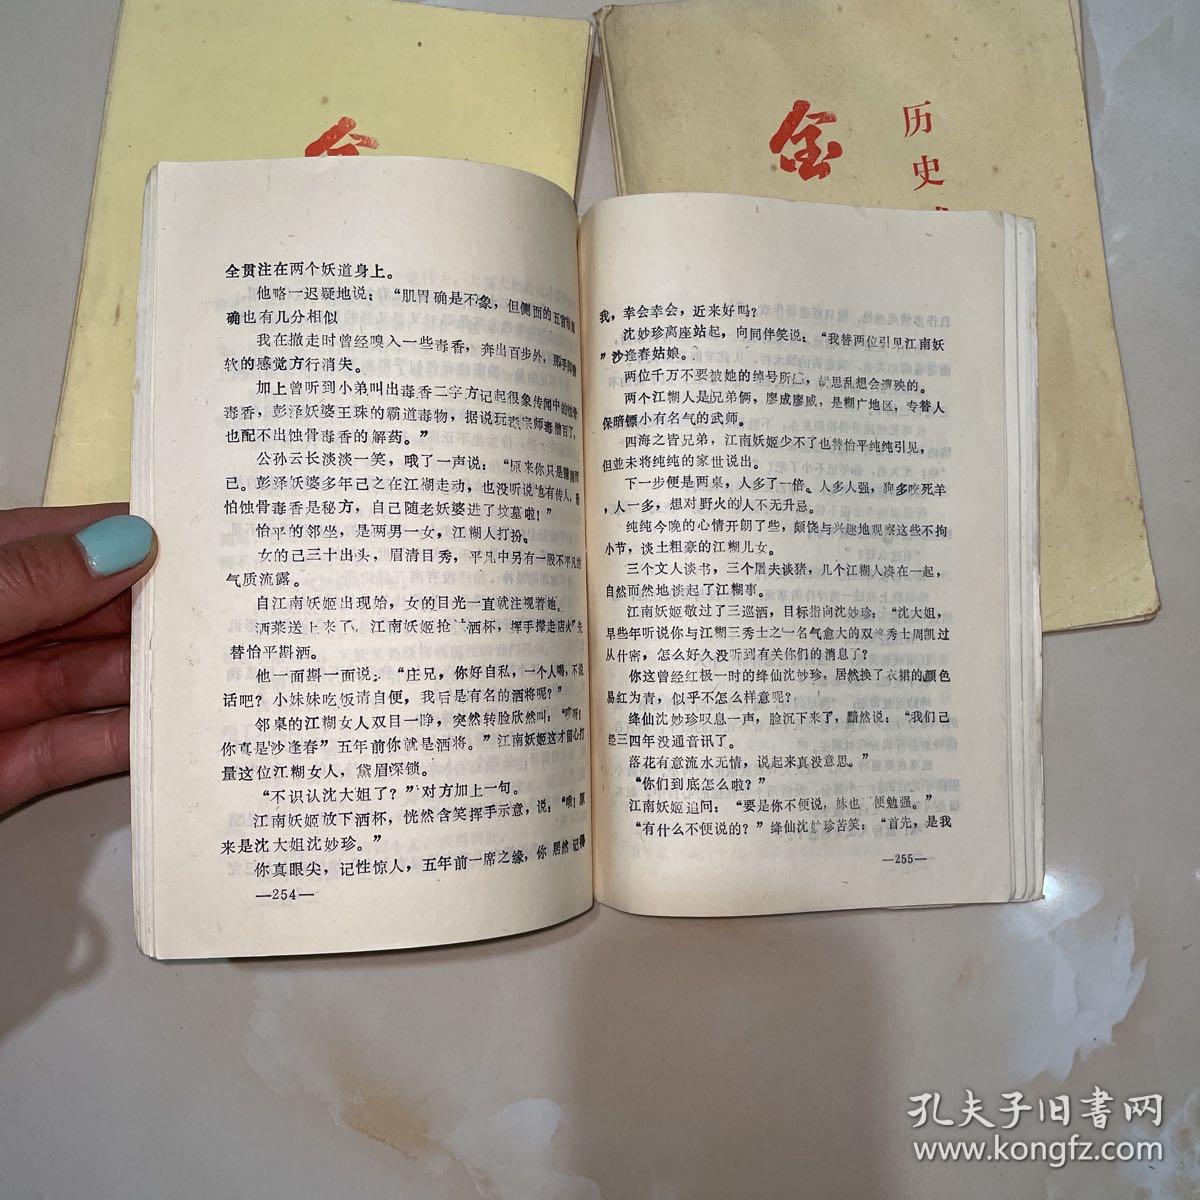 金
金
历史
全贯注在两个妖道身上。
他略一迟疑地说：“肌胃确是不象，但侧面的五官
确也有几分相似
我在撤走时曾经嗅入一些毒香，奔出百步外，那手
软的感觉方行消失。
加上曾听到小弟叫出毒香二字方记起很象传闻中的
毒香，彭泽妖婆王珠的霸道毒物，据说玩毒宗师毒僧百了，
也配不出蚀骨毒香的解药。”
公孙云长淡淡一笑，哦了一声说：“原来你只是
已。彭泽妖婆多年己之在江糊走动，也没听说他有传人，
怕蚀骨毒香是秘方，自己随老妖婆进了坟墓啦！”
怡平的邻坐，是两男一女，江糊人打扮。
女的己三十出头，眉清目秀，平凡中另有一股不平凡的
气质流露。
自江南妖姬出现始，女的目光一直就注视着她。
洒菜送上来了，江南妖姬抢过洒杯，挥手撵走店火“先
替怡平斟洒。
他一面斟一面说：“庄兄，你好自私，一个人喝，不说
话吧？小妹妹吃饭请自便，我后是有名的洒将呢？”
邻桌的江糊女人双目一睁，突然转脸欣然叫：“哎呀！
你真是沙逢春”五年前你就是洒将。”江南妖姬这才留心打
量这位江糊女人，黛眉深锁。
“不识认沈大姐了？”对方加上一句。
江南妖姬放下洒杯，恍然含笑挥手示意，说：“哦！原
来是沈大姐沈妙珍。”
你真眼尖，记性惊人，五年前一席之缘，你居然记得
—254—
我，幸会幸会，近来好吗？
沈妙珍离座站起，向同伴笑说：“我替两位引见江南妖
”沙逢春姑娘。
两位千万不要被她的绰号所惑，胡思乱想会遭殃的。
两个江糊人是兄弟俩，廖成廖威，是糊广地区，专替人
保暗镖小有名气的武师。
四海之皆兄弟，江南妖姬少不了也替怡平纯纯引见，
但並未将纯纯的家世说出。
下一步便是两桌，人多了一倍。人多人强，狗多咬死羊
，人一多，想对野火的人不无升忌。
纯纯今晚的心情开朗了些，颇饶与兴趣地观察这些不拘
小节，谈土粗豪的江糊儿女。
三个文人谈书，三个屠夫谈猪，几个江糊人凑在一起，
自然而然地谈起了江糊事。
江南妖姬敬过了三巡洒，目标指向沈妙珍：“沈大姐，
早些年听说你与江糊三秀士之一名气愈大的双绝秀士周凯过
从什密，怎么好久没听到有关你们的消息了？
你这曾经红极一时的绛仙沈妙珍，居然换了衣裙的颜色
易红为青，似乎不怎么样意呢？
绛仙沈妙珍叹息一声，脸沉下来了，黯然说：“我们己
经三四年没通音讯了。
落花有意流水无情，说起来真没意思。”
“你们到底怎么啦？”
江南妖姬追问：“要是你不便说，妹也 便勉强。”
“有什么不便说的？”绛仙沈妙珍苦笑：“首先，是我
—255—
孔夫子旧書网
www.kongfz.com